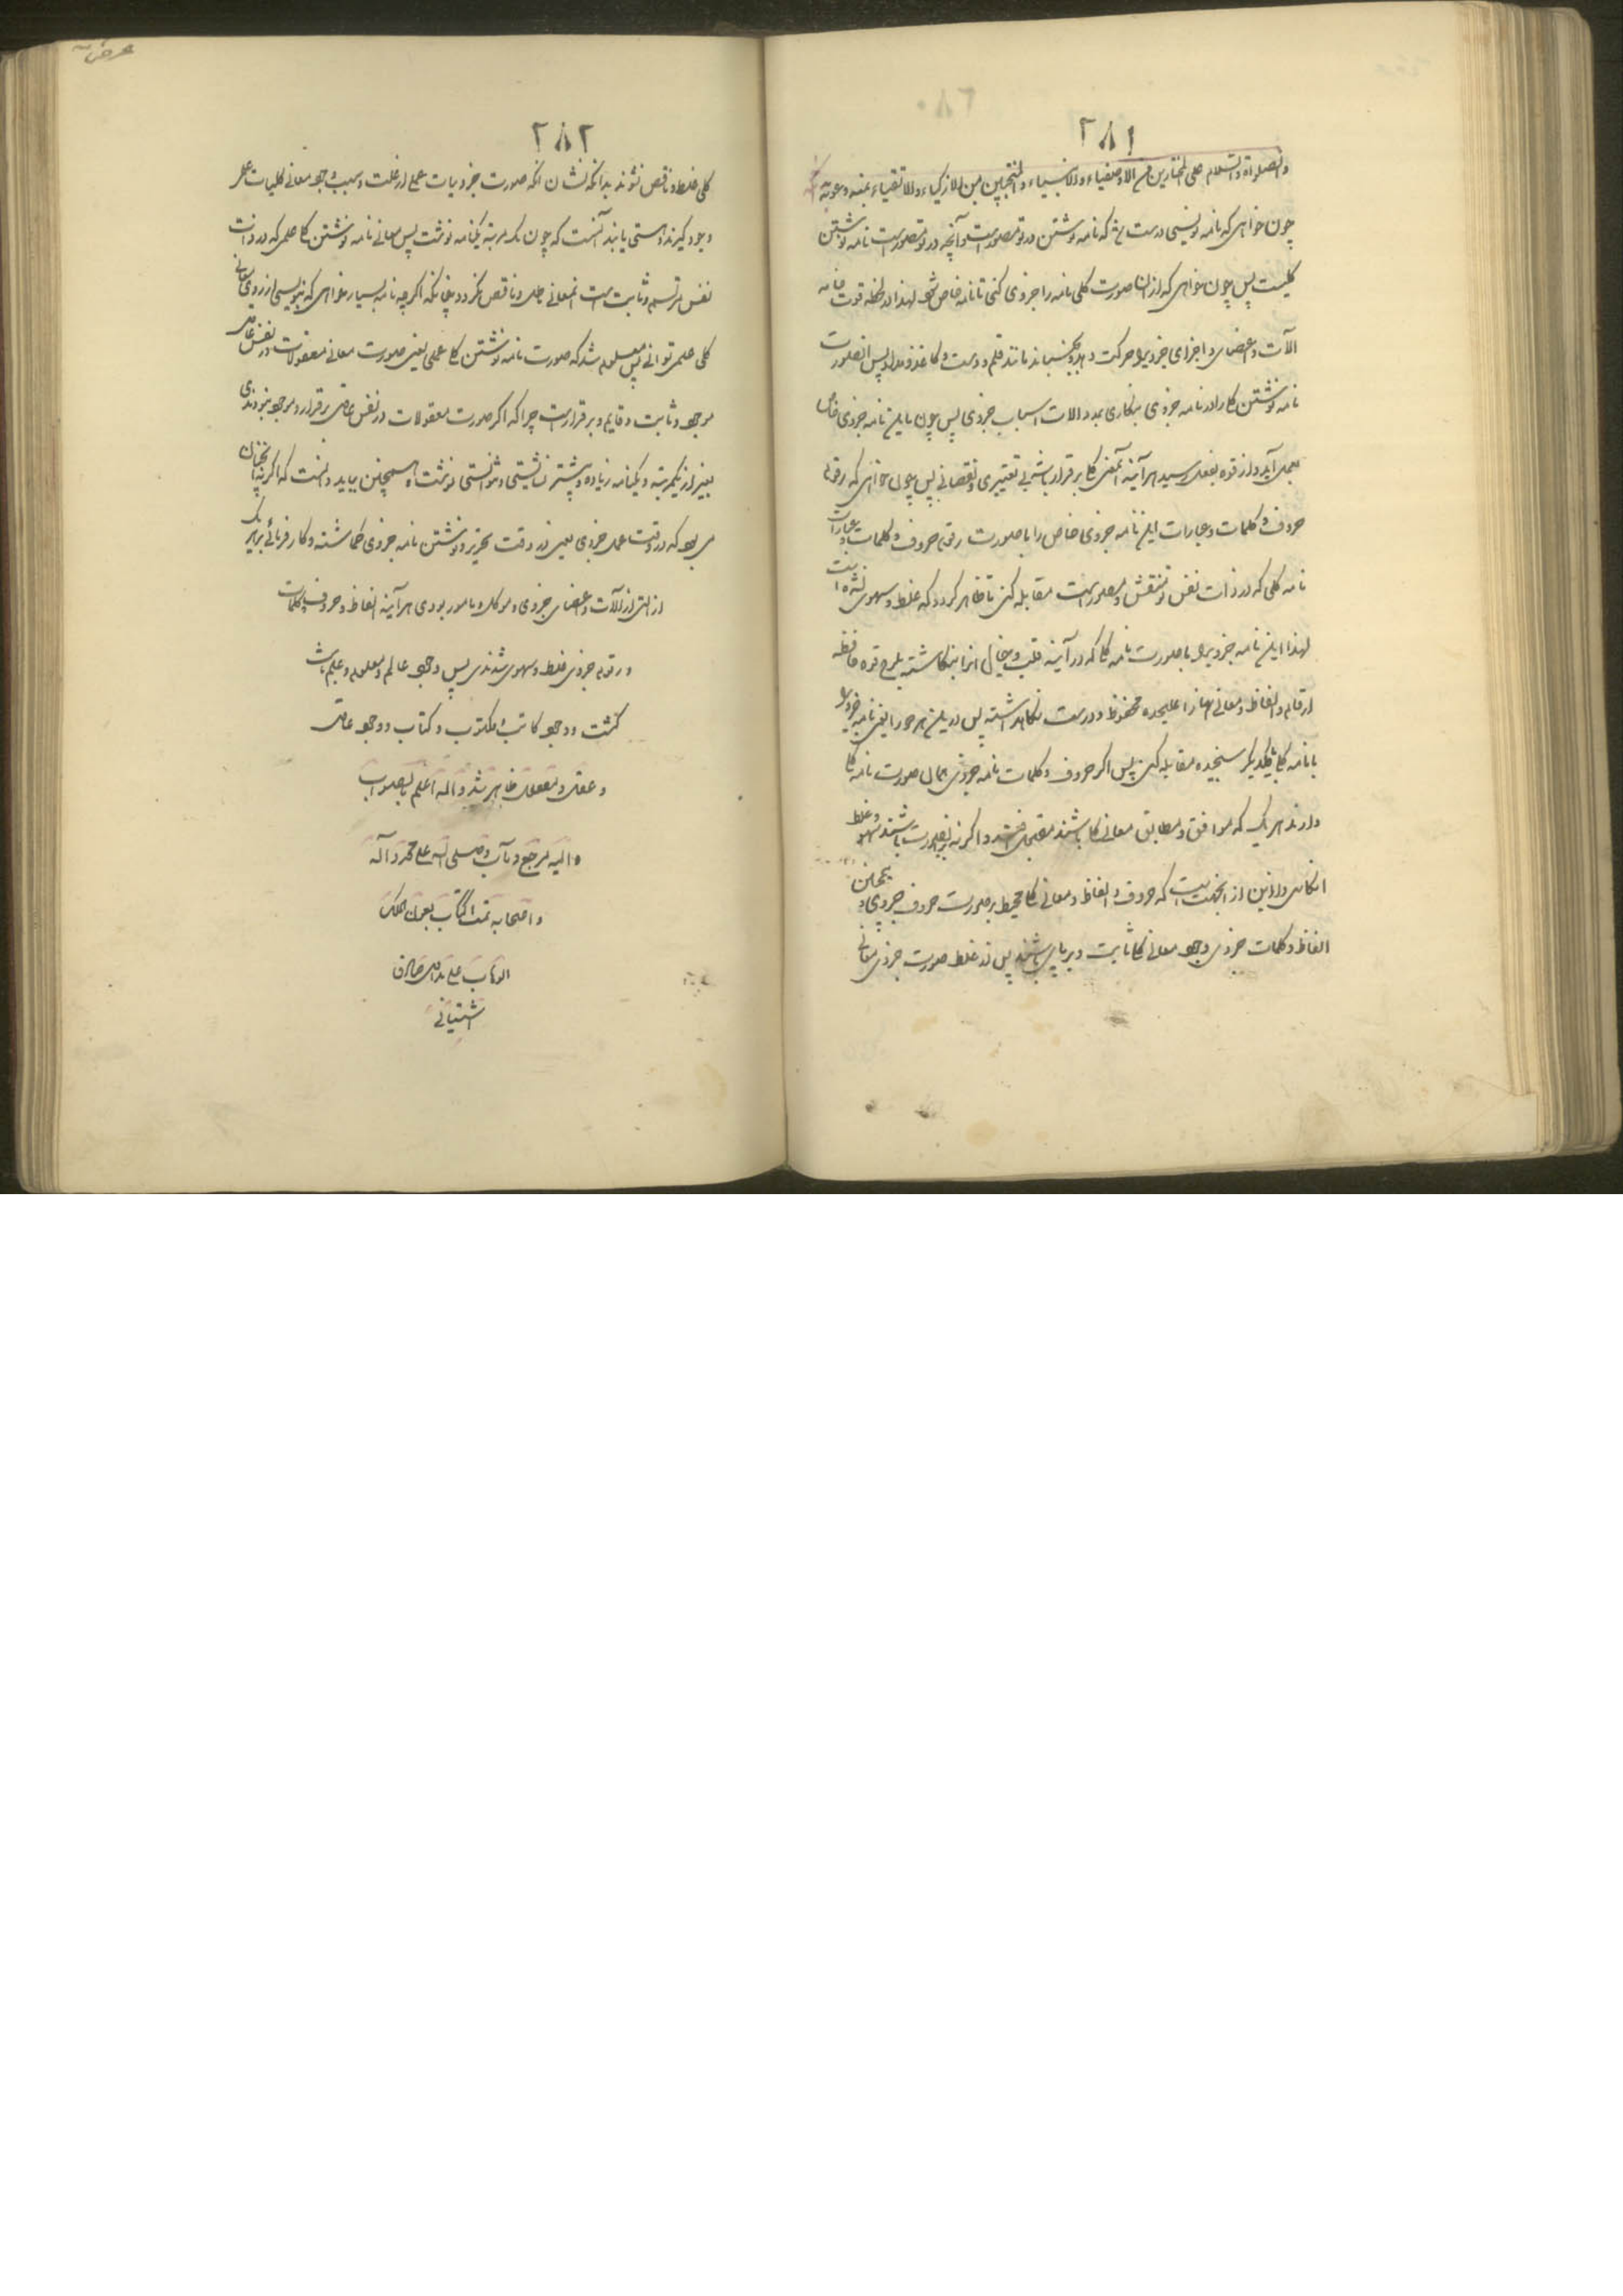 ۲۸۱
والصلواة والسلام علی المختارین من الاوصفیاء والانبیاء والمنتجبین من الازکیاء والاتقیاء بمنه وعونه
چون خواهی که نامه نویسی درست که نامه نوشتن در تو متصور است وآنچه در تو متصور است نامه نوشتن
کلیست پس چون خواهی که از آن صورت کلی نامه را جزوی کنی تا نامه خاص شود لهذا قوت
آلات واعضای واجزای جزوی حرکت دهد وبجنباند مانند قلم ودست وکاغذ ومداد پس انصورت
نامه نوشتن کلی را در نامه جزوی بنکاری بمدد الات اسباب جزوی پس چون این نامه جزوی خاص
بعمل آید واز قوه بفعل رسید هر آینه آنمعنی کلی برقرار باشد بی تغییری ونقصانی پس چون خواهی که رقوم
حروف وکلمات وعبارات این نامه جزوی خاص را با صورت رقوم حروف وکلمات وعبارات
نامه کلی که در ذات نفس تو منتقش ومصور است مقابله کنی تا ظاهر کردد که غلط وسهوی نشده است
لهذا این نامه جزوی را با صورت نامه کلی که در آینه قلب وخیال انرا بنکاشته بلوح قوه حافظه
ارقام والفاظ ومعانی علیحده محفوظ ودرست نکاهداشته پس در این هر دو را یعنی نامه جزوی
با نامه کلی با یکدیکر سنجیده مقابله کنی پس اکر حروف وکلمات نامه جزوی همان صورت نامه کلی
دارند هر یک که موافق ومطابق معانی کلی باشند واکر نه بر انصورت باشند سهو وغلط
انکاس از انجهت است که حروف والفاظ ومعانی کلی محیط بر صورت حروف جزوی همچنین
الفاظ وکلمات جزوی وجود معانی کلی ثابت وبرپای باشند پس از غلط صورت جزوی معانی
۲۸۲
کلی غلط وناقص نشوند بدانکه نشان انکه صورت جزویات عملی از علت وسبب وجود معانی کلیات
وجود کیرند وهستی یابند آنست که چون یک مرتبه یکنامه نوشت پس معانی نامه نوشتن کلی علمی که در ذات
نفس مرتسم وثابت است انمعانی وناقص نکردد چنانکه اکر چه نامه بسیار خواهی که بنویسی از روی معانی
کلی علمی توانی پس معلوم شد که صورت نامه نوشتن کلی عملی یعنی صورت معانی معقولات در نفس عاقل
موجود وثابت وقایم وبرقرار است چرا که اکر صورت معقولات در نفس عاقل برقرار وموجود نبودندی
بغیر از یکمرتبه ویکنامه زیاده وبیشتر نبایستی ونتوانستی نوشت همچنین بباید دانست که اکر نه انچنان
می بود که در وقت عمل جزوی یعنی در وقت تحریر ونوشتن نامه جزوی کماشته وکارفرمائی بر هر یک
از التی از آلات واعضای جزوی وموکل ومامور بودی هر آینه الفاظ وحروف وکلمات
ورقوم جزوی غلط وسهوی شدندی پس وجود عالم ومعلوم وعلم ثابت
کشت ووجود کاتب ومکتوب وکتاب ووجود عاقل
وعقل ومعقول ظاهر شد والله اعلم بالصواب
والیه مرجع ومآب وصلی الله علی محمد وآله
واصحابه تمت الکتاب بعون الملک
الوهاب علی ید
اشتیانی